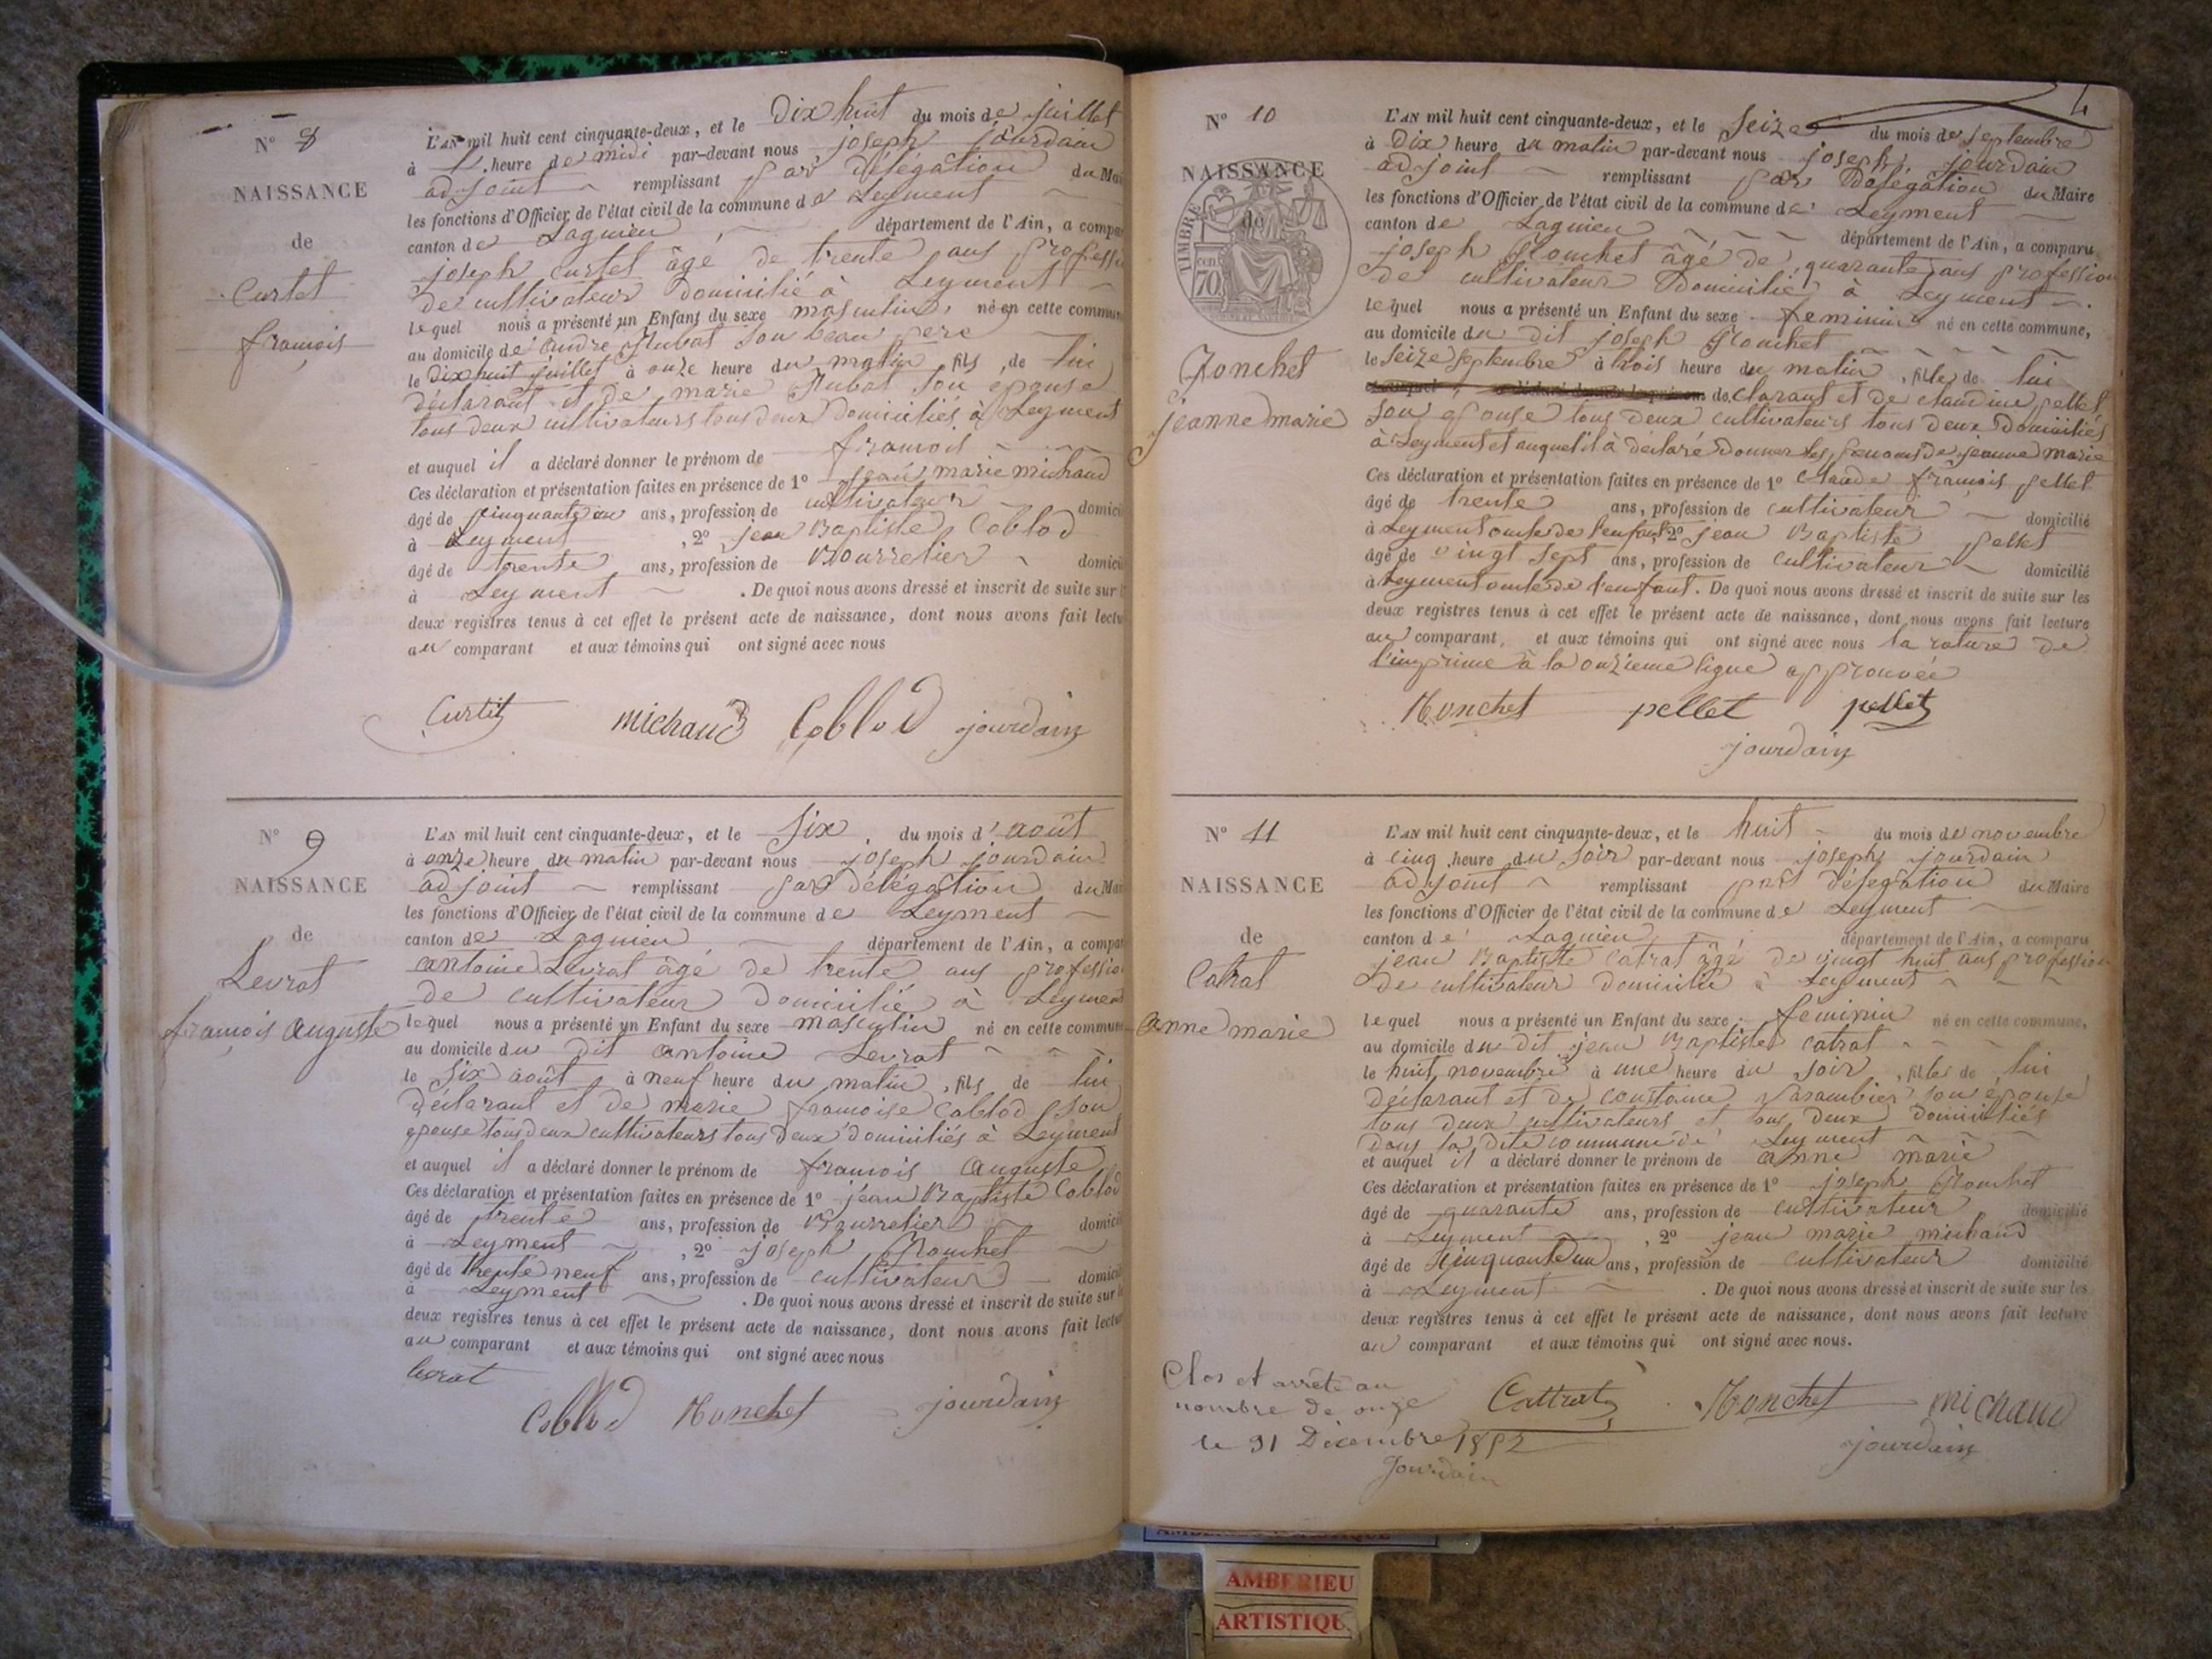 N° 8
NAISSANCE
de
Curtet
françois
L'AN mil huit cent cinquante-deux, et le Dix huit du mois de juillet
à 1 heure de midi par-devant nous joseph jourdain
adjoint remplissant par délégation du Mai
les fonctions d'Officier de l'état civil de la commune de Leyment
canton de Lagnieu département de l'Ain, a compa
joseph curtet âgé de trente ans professi
de cultivateur Domicilié à Leyment
lequel nous a présenté un Enfant du sexe masculin, né en cette commun
au domicile de andré son beau pere
le Dix huit juillet à onze heure du matin fils de lui
déclarant et de marie son epouse
tous deux cultivateurs tous deux Domiciliés à Leyment
et auquel il a déclaré donner le prénom de françois
Ces déclaration et présentation faites en présence de 1° jean marie michaud
âgé de cinquante un ans, profession de cultivateur domici
à Leyment , 2° jean Baptiste Coblod
âgé de trente ans, profession de Bourrelier domici
à Leyment . De quoi nous avons dressé et inscrit de suite sur l
deux registres tenus à cet effet le présent acte de naissance, dont nous avons fait lectu
au comparant et aux témoins qui ont signé avec nous
Curtet michaud Coblod jourdain
N° 9
NAISSANCE
de
Levrat
françois Auguste
L'AN mil huit cent cinquante-deux, et le Six du mois d'août
à onze heure du matin par-devant nous joseph jourdain
adjoint remplissant par délégation du Mai
les fonctions d'Officier de l'état civil de la commune de Leyment
canton de Lagnieu département de l'Ain, a compar
antoine Levrat âgé de trente ans professio
de cultivateur Domicilié à Leyment
lequel nous a présenté un Enfant du sexe masculin né en cette commune
au domicile du dit antoine Levrat
le six août à neuf heure du matin, fils de lui
déclarant et de marie françoise Coblod son
epouse tous deux cultivateurs tous deux domiciliés à Leyment
et auquel il a déclaré donner le prénom de françois Auguste
Ces déclaration et présentation faites en présence de 1° jean Baptiste Coblod
âgé de trente ans, profession de Bourrelier domicil
à Leyment , 2° joseph Monchet
âgé de trente neuf ans, profession de cultivateur domici
à Leyment . De quoi nous avons dressé et inscrit de suite sur l
deux registres tenus à cet effet le présent acte de naissance, dont nous avons fait lectu
au comparant et aux témoins qui ont signé avec nous
Levrat
Coblod Monchet jourdain
4
N° 10
NAISSANCE
de
TIMBRE
cen
70
Monchet
jeanne marie
L'AN mil huit cent cinquante-deux, et le Seize du mois de septembre
à Dix heure du matin par-devant nous joseph jourdain
adjoint remplissant par Délégation du Maire
les fonctions d'Officier de l'état civil de la commune de Leyment
canton de Lagnieu département de l'Ain, a comparu
joseph Monchet âgé de quarante ans profession
de cultivateur Domicilié à Leyment
lequel nous a présenté un Enfant du sexe feminin né en cette commune,
au domicile du dit joseph Monchet
le Seize septembre à trois heure du matin, fille de lui
declarant et de claudine pellet
son epouse tous deux cultivateurs tous deux Domiciliés
à Leyment et auquel il à declaré Donner les prenoms De jeanne marie
Ces déclaration et présentation faites en présence de 1° Claude françois pellet
âgé de trente ans, profession de cultivateur domicilié
à Leyment oncle de l'enfant, 2° jean Baptiste pellet
âgé de vingt sept ans, profession de cultivateur domicilié
à Leyment oncle de l'enfant. De quoi nous avons dressé et inscrit de suite sur les
deux registres tenus à cet effet le présent acte de naissance, dont nous avons fait lecture
au comparant, et aux témoins qui ont signé avec nous la rature de
l'imprimé à la onzieme ligne approuvée
Monchet pellet pellet
jourdain
N° 11
NAISSANCE
de
Catrat
anne marie
L'AN mil huit cent cinquante-deux, et le huit du mois de novembre
à cinq heure du soir par-devant nous joseph jourdain
adjoint remplissant par délégation du Maire
les fonctions d'Officier de l'état civil de la commune de Leyment
canton de Lagnieu département de l'Ain, a comparu
jean Baptiste Catrat âgé de vingt huit ans profession
De cultivateur domicilié à Leyment
lequel nous a présenté un Enfant du sexe féminin né en cette commune,
au domicile du dit jean Baptiste Catrat
le huit novembre à une heure du soir, fille de lui
déclarant et de son épouse
tous deux cultivateurs et tous deux domiciliés
dans la dite commune de Leyment
et auquel il a déclaré donner le prénom de anne marie
Ces déclaration et présentation faites en présence de 1° joseph Monchet
âgé de quarante ans, profession de cultivateur domicilié
à Leyment , 2° jean marie michaud
âgé de cinquante un ans, profession de cultivateur domicilié
à Leyment . De quoi nous avons dressé et inscrit de suite sur les
deux registres tenus à cet effet le présent acte de naissance, dont nous avons fait lecture
au comparant et aux témoins qui ont signé avec nous.
Clos et arrêté au
nombre de onze
le 31 Décembre 1852
Jourdain
Cattrat Monchet michaud
jourdain
AMBERIEU
ARTISTIQU